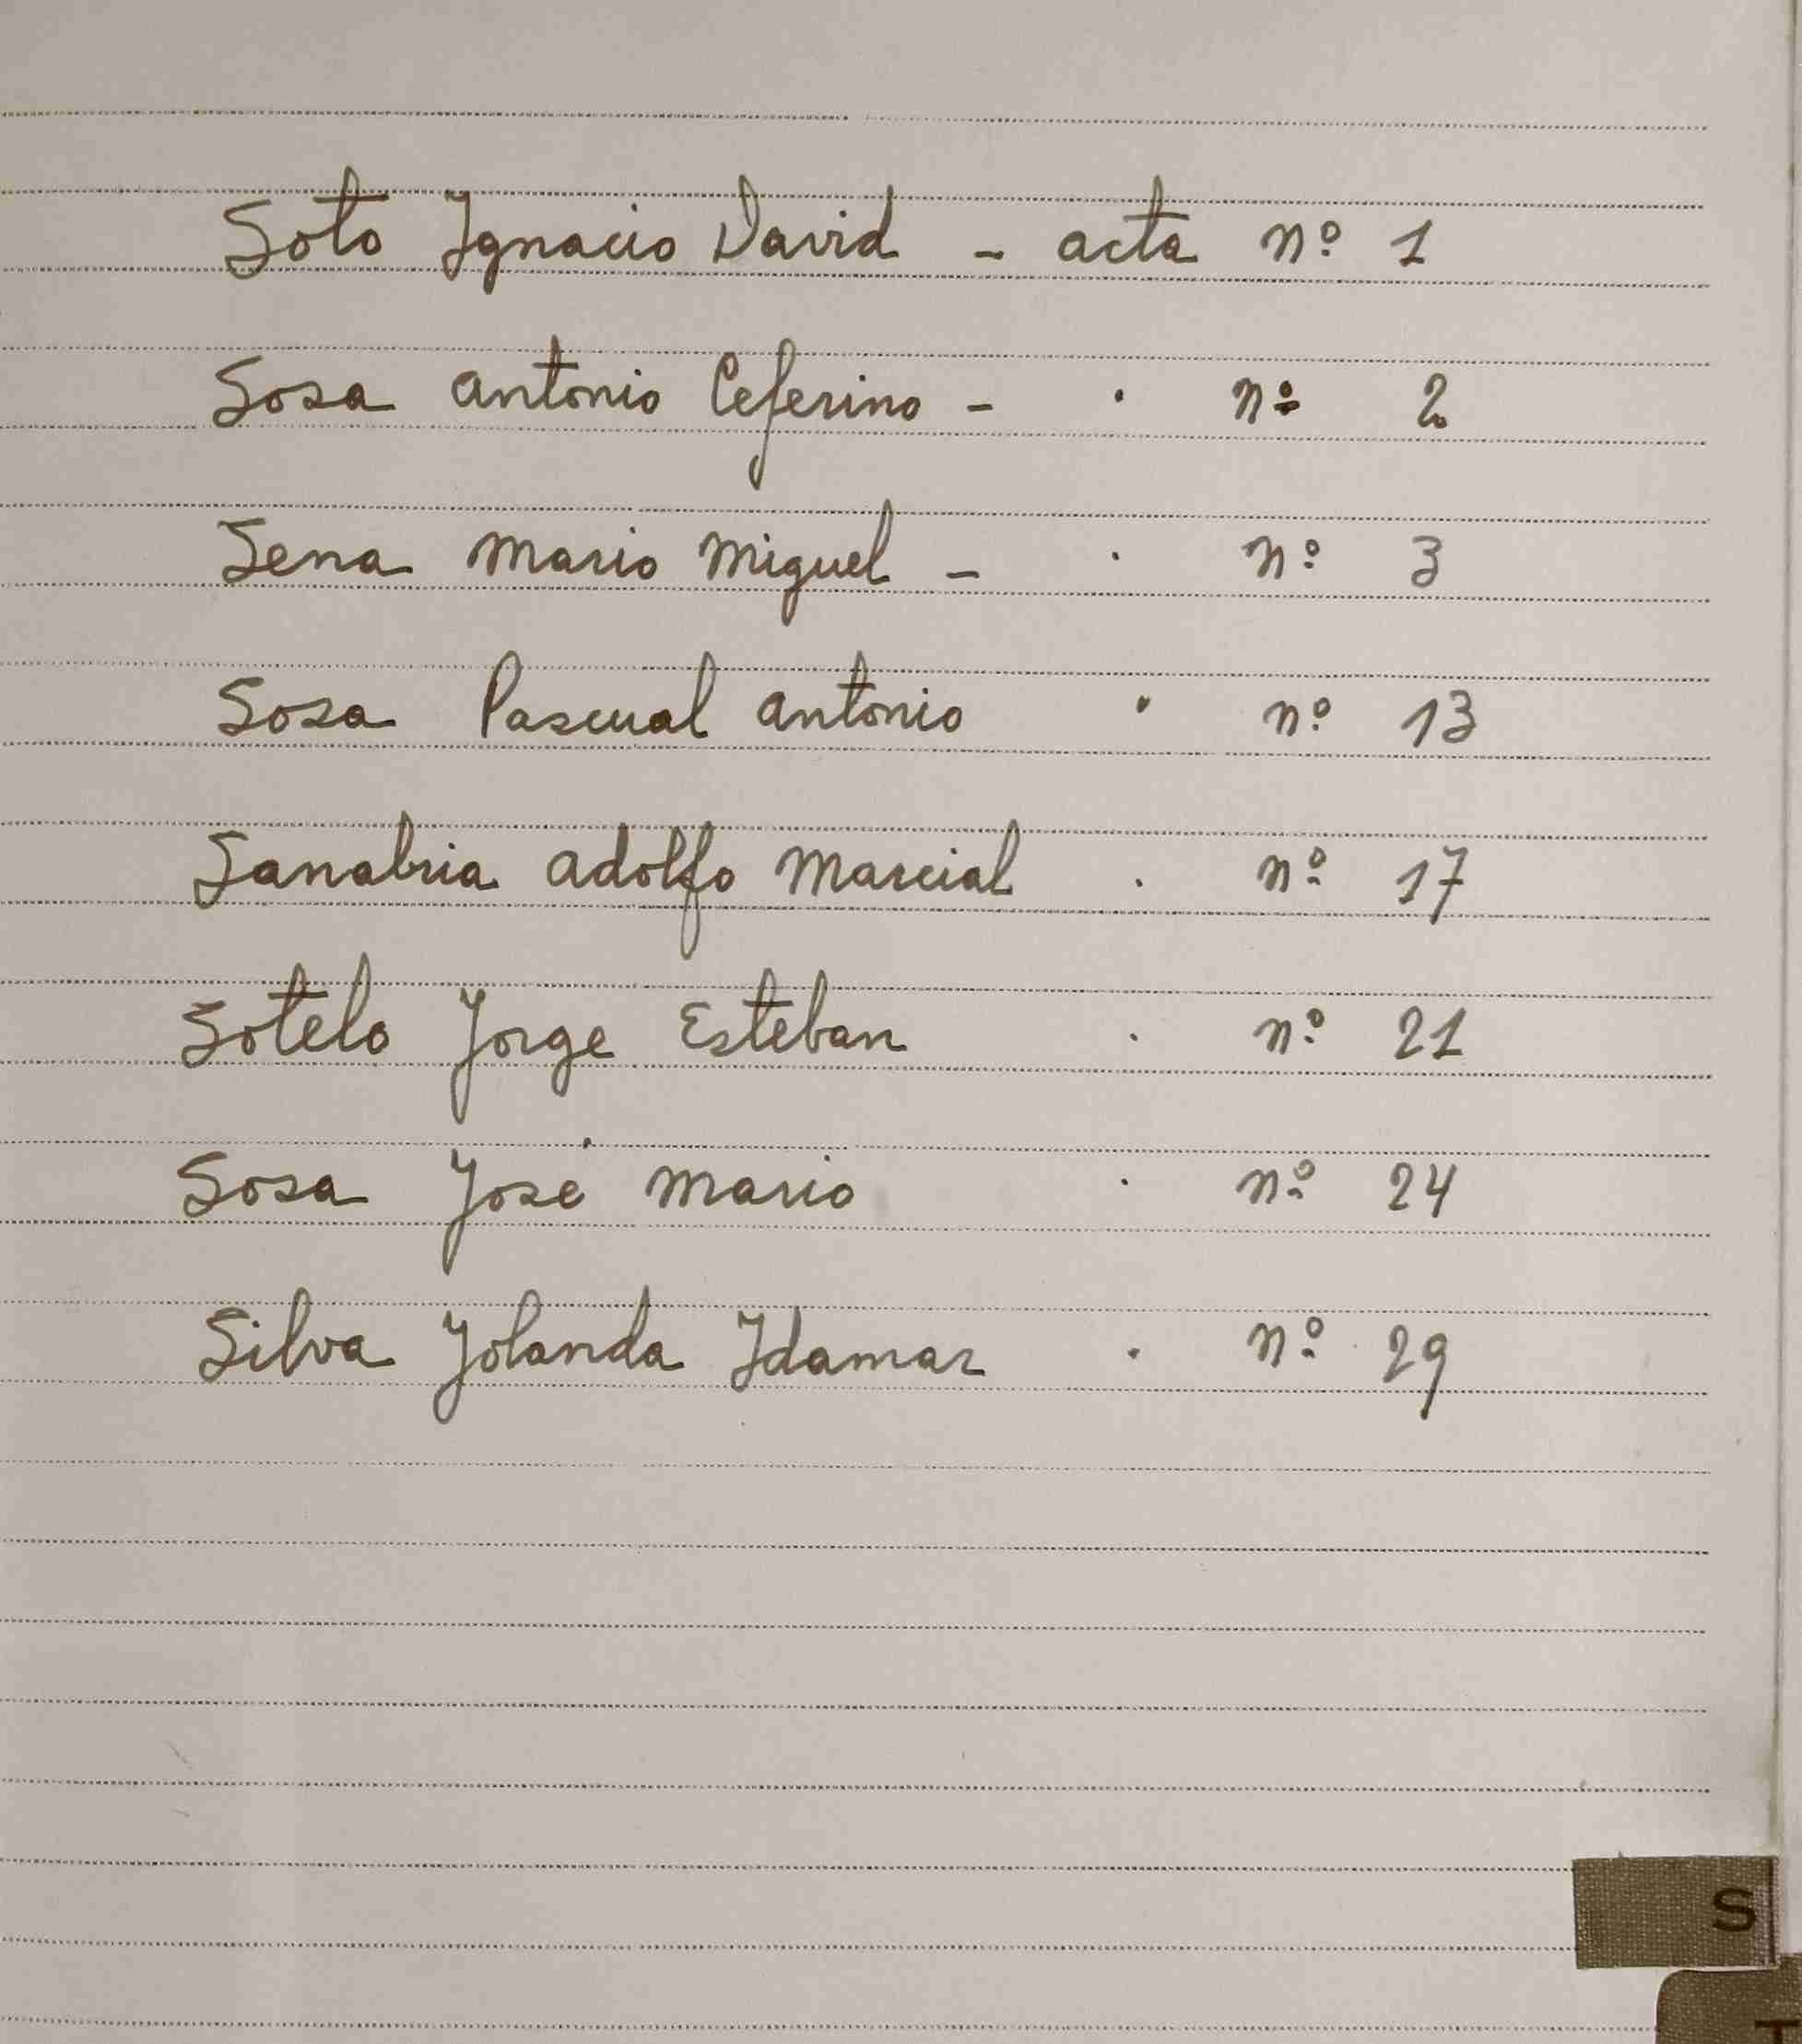 Soto Ignacio David - acta nº 1
Sosa Antonio Ceferino - . nº 2
Sena Mario Miguel - . nº 3
Sosa Pascual Antonio . nº 13
Sanabria Adolfo Marcial . nº 17
Sotelo Jorge Esteban . nº 21
Sosa José Mario . nº 24
Silva Yolanda Idamar . nº 29
S
T